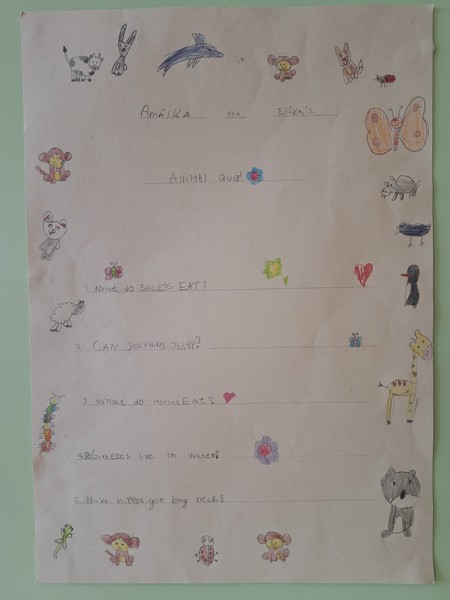 AMÁIKA AND ERIKA'S
ANIMAL QUIZ
1. What do SHEEPS EAT?
2. CAN DOLPHINS JUMP?
3 What do Horses Eat?
4. Do Giraffes live in water?
Have hippos got long neck?